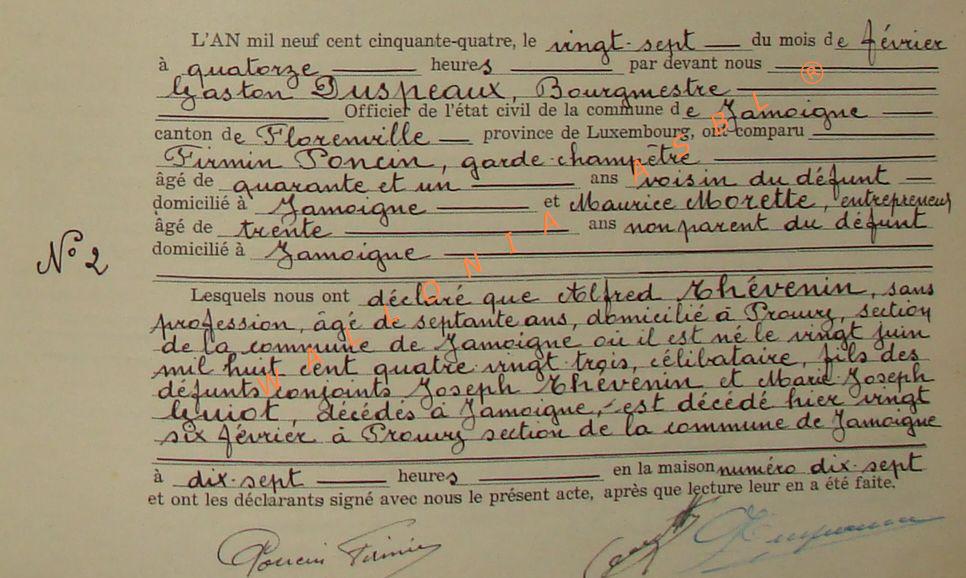 L'AN mil neuf cent cinquante-quatre, le vingt-sept du mois de février
à quatorze heures par devant nous
Gaston Duspeaux, Bourgmestre
Officier de l'état civil de la commune de Jamoigne
canton de Florenville province de Luxembourg, ont comparu
Firmin Poncin, garde-champêtre
âgé de quarante et un ans voisin du défunt
domicilié à Jamoigne et Maurice Morette, entrepreneur
âgé de trente ans non parent du défunt
domicilié à Jamoigne
N° 2
Lesquels nous ont déclaré que Alfred Thévenin, sans
profession, âgé de septante ans, domicilié à Prouvy, section
de la commune de Jamoigne où il est né le vingt juin
mil huit cent quatre-vingt-trois, célibataire, fils des
défunts conjoints Joseph Thévenin et Marie-Joseph
Guiot, décédés à Jamoigne, est décédé hier vingt
six février à Prouvy section de la commune de Jamoigne
à dix-sept heures en la maison numéro dix-sept
et ont les déclarants signé avec nous le présent acte, après que lecture leur en a été faite.
Poncin Firmin
WALLONIA ASBL ®